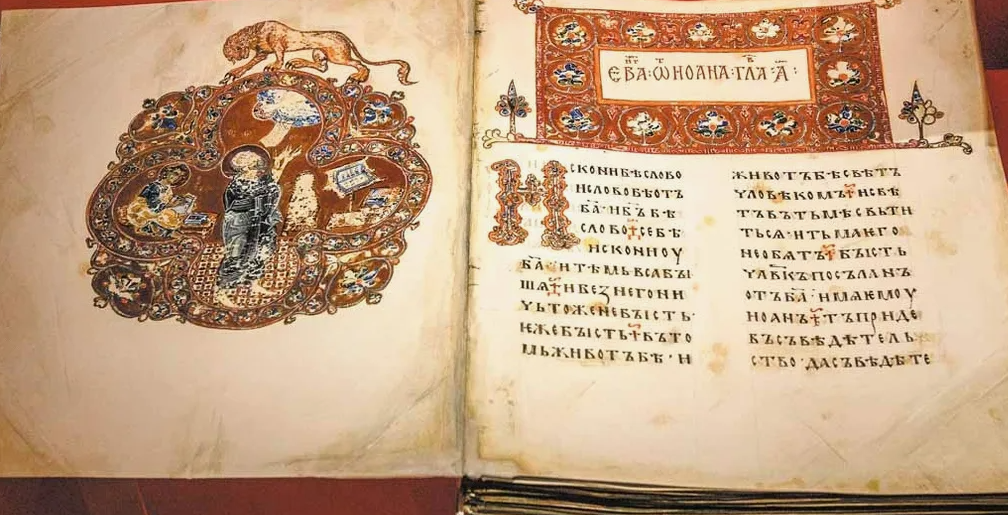 ЄВА·ѠИОАНА·ГЛА·А҃·
ИСКОНИБѢСЛОВО
ИСЛОВОБѢОТЪ
БА҃·ИБ҃ЪБѢ
СЛОВО·СЕБѢ
ИСКОНИОУ
БА҃·ИТѢМЬВСАБЫ
ШѦ·ИБЕЗНЕГОНИ
ЧЬТОЖЕНЕБЫСТЬ·
ЕЖЕБЫСТЬ·ВЪТО
МЬЖИВОТЪБѢ·И
ЖИВОТЪБѢСВѢТЪ
ЧЛОВѢКОМЪ·ИСВѢ
ТЪВЪТЬМѢСВЬТИ
ТЬСѦ·ИТЬМАЕГО
НЕОБѦТЪ·БЫСТЬ
ЧЛВ҃КЪПОСЪЛАНЪ
ОТЪБА҃·ИМѦЕМОУ
ИОАНЪ·ТЪПРИДЕ
ВЪСЪВѢДѢТЕЛЬ
СТВО·ДАСЪВѢДѢТЕ